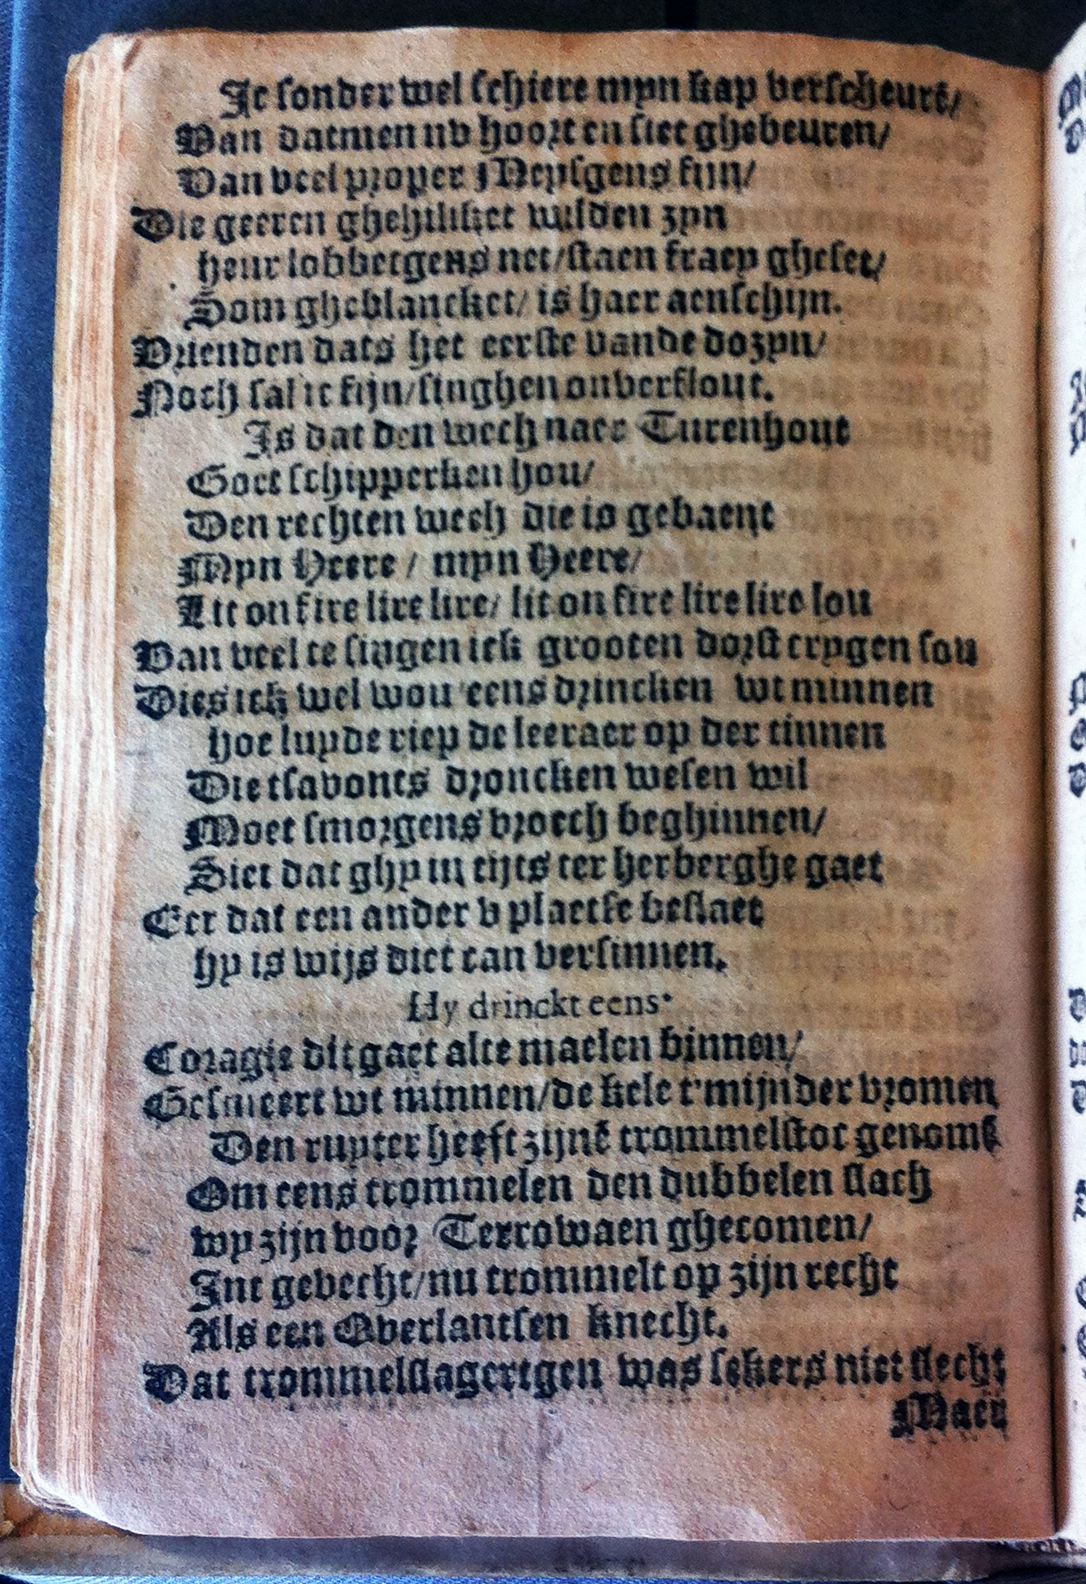 Ic sonder wel schiere myn kap verscheurē/
Van datmen nv hoort en siet ghebeuren/
Van veel proper Meysgens fijn/
Die geeren ghehilicket wilden zyn
heur lobbetgens net/staen fraey gheset/
Som gheblancket/ is haer aenschijn.
Vrienden dats het eerste vande dozyn/
Noch sal ic fijn/singhen onverflout.
Is dat den wech naer Turenhout
Goet schipperken hou/
Den rechten wech die is gebaent
Myn Heere / myn Heere/
Lit on fire lire lire/ lit on fire lire lire lou
Van veel te singen ick grooten dorst crygen sou
Dies ick wel wou eens drincken wt minnen
hoe luyde riep de leeraer op der tinnen
Die tsavonts droncken wesen wil
Moet smorgens vroech beghinnen/
Siet dat ghy in tijts ter herberghe gaet
Eer dat een ander v plaetse beslaet
hy is wijs diet can versinnen.
Hy drinckt eens.
Coragie dit gaet alte maelen binnen/
Gesmeert wt minnen/de kele t'mijnder vromen
Den ruyter heeft zijnē trommelstoc genomē
Om eens trommelen den dubbelen slach
wy zijn voor Terrowaen ghecomen/
Int gevecht/nu trommelt op zijn recht
Als een Overlantsen knecht.
Dat trommelslagertgen was sekers niet slecht
Maer